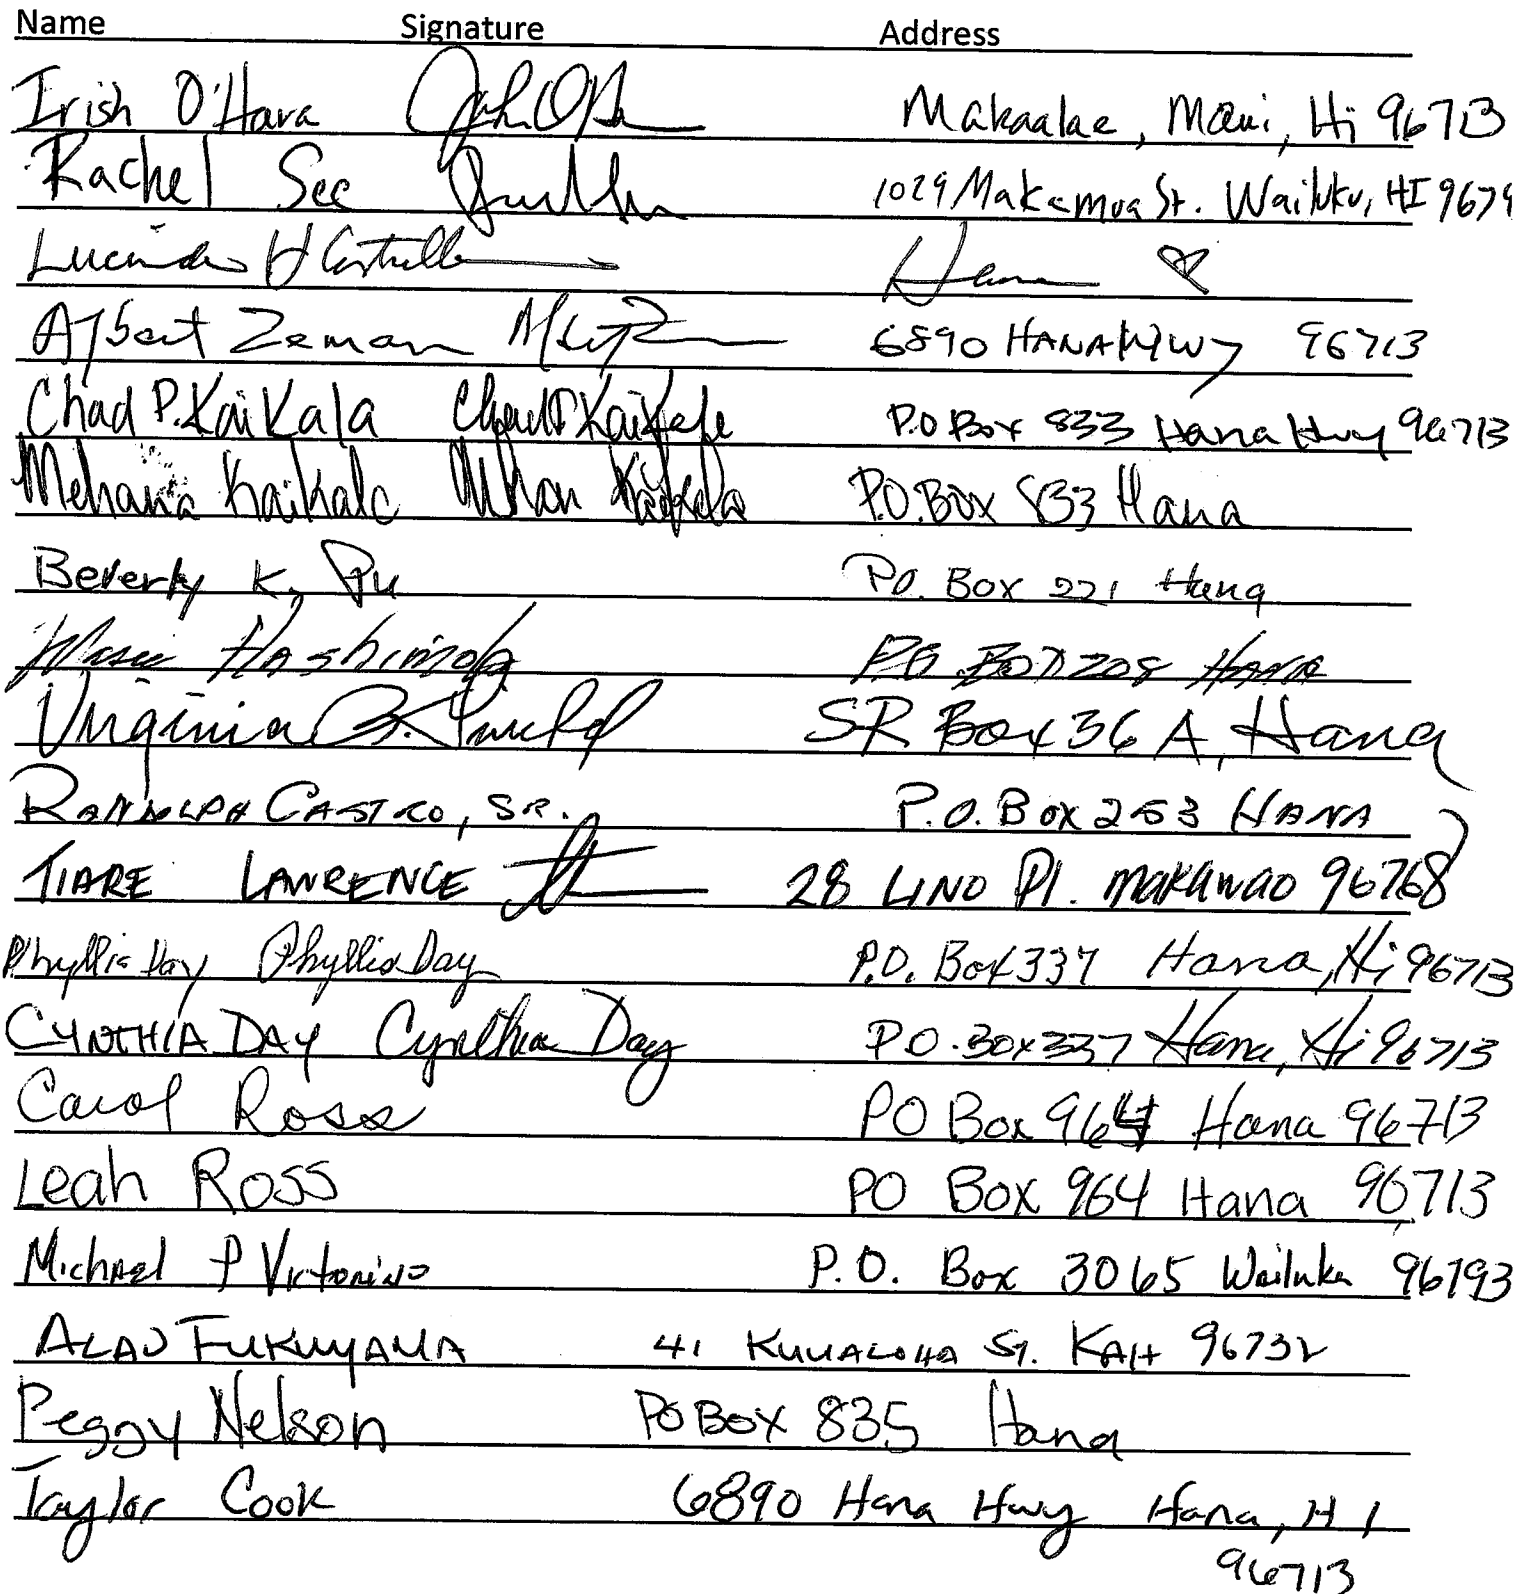 Name Signature Address
Irish O'Hara Makaalae, Maui, Hi 96713
Rachel See 1029 Makamua St. Wailuku, HI 9679
Lucinda H Hana
Albert Zeman 6890 HANA HWY 96713
Chad P. Kaikala Chad P Kaikala P.O Box 833 Hana Hwy 96713
Mehana Kaikala Kaikala P.O. Box 833 Hana
Beverly K. Pu P.O. Box 221 Hana
Hashimoto P.O. Box 208 HANA
Virginia SR Box 36 A, Hana
RANDOLPH CASTRO, SR. P.O. Box 253 HANA
TIARE LAWRENCE 28 LINO Pl. Makawao 96768
Phyllis Day Phyllis Day P.O. Box 337 Hana, Hi 96713
CYNTHIA DAY Cynthia Day P.O. Box 337 Hana, Hi 96713
Carol Ross PO Box 964 Hana 96713
Leah Ross PO Box 964 Hana 96713
Michael P Victorino P.O. Box 3065 Wailuku 96793
ALAN FUKUYAMA 41 St. KAH 96732
Peggy Nelson PO BOX 835 Hana
Taylor Cook 6890 Hana Hwy Hana, HI
96713